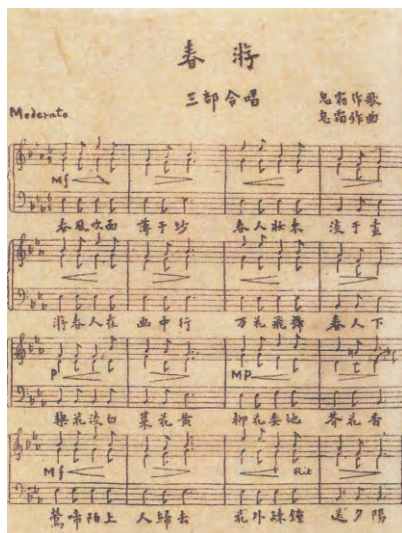 春游
三部合唱
息霜作歌
息霜作曲
Moderato
Mf
春風吹面 薄于紗 春人妝束 淡于畫
游春人在 画中行 万花飛舞 春人下
P MP
梨花淡白 菜花黄 柳花委地 芥花香
Mf Rit
鶯啼陌上 人歸去 花外疎鐘 送夕陽